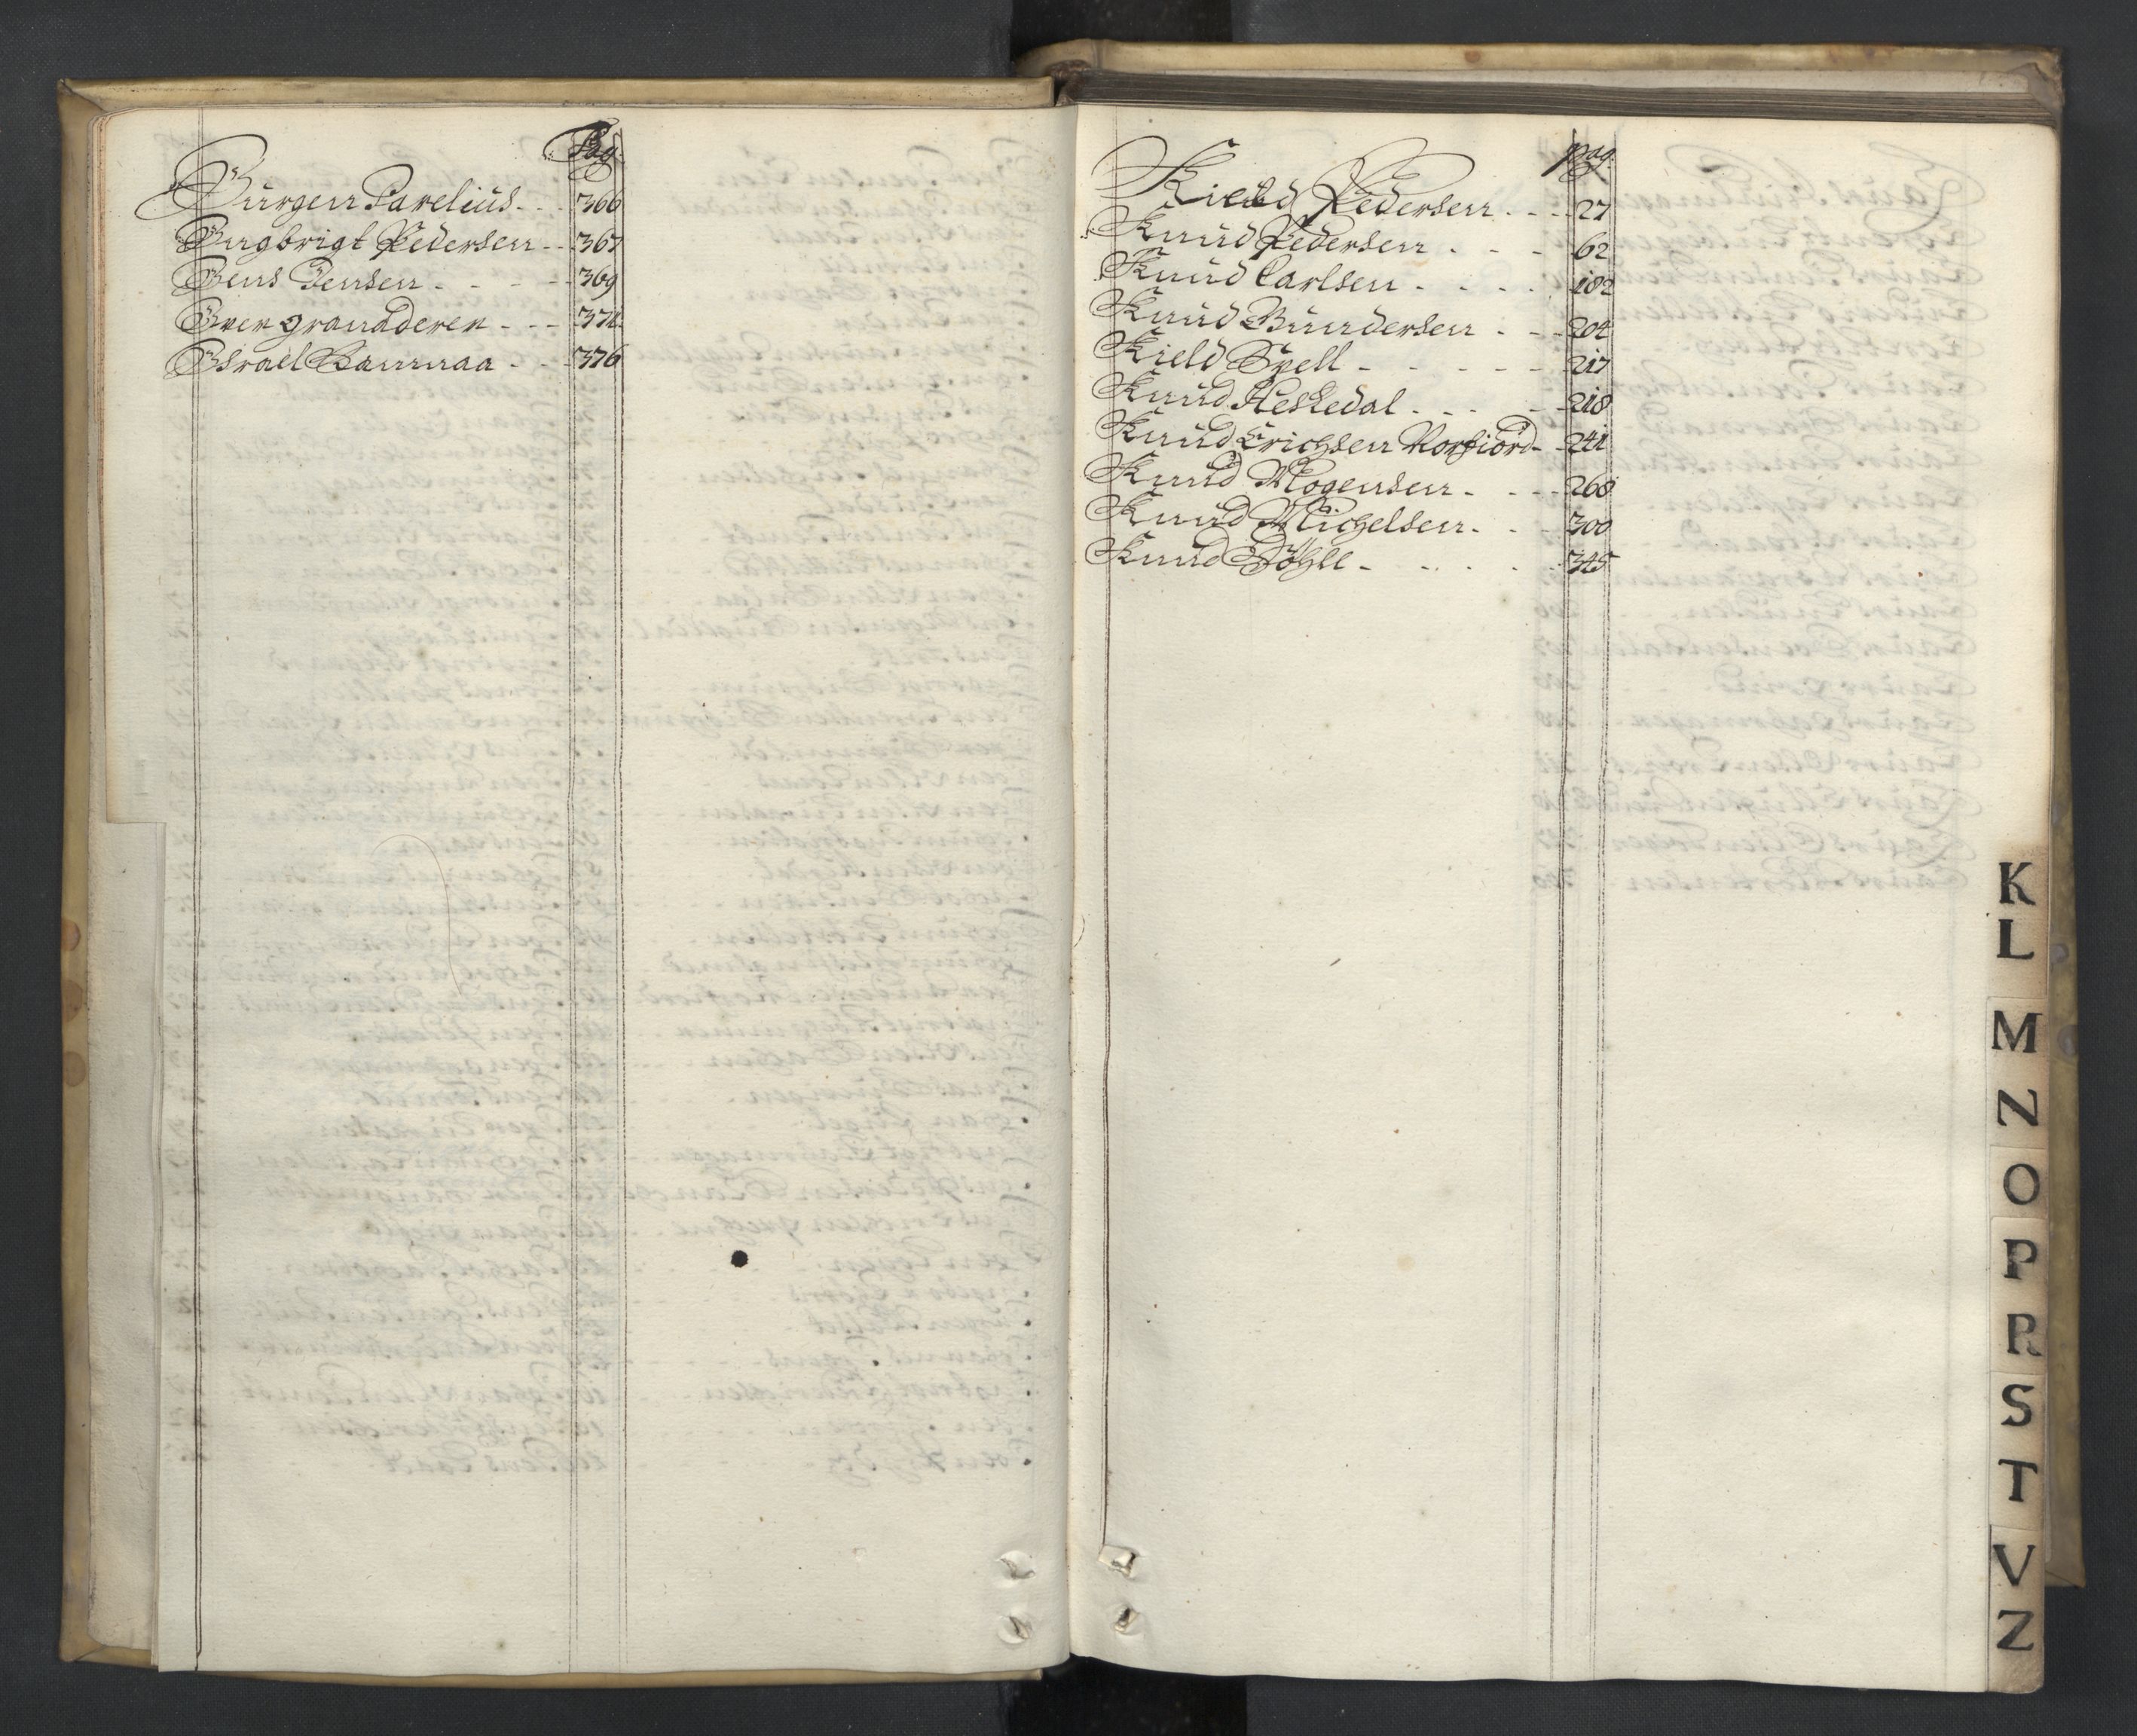 Pag.
Jürgen Parelius - - 366
Ingbrigt Pedersen - - 367
Jens Jensen - - - - 369
Iver granaderer - - - 374
Israel - - 376
pag.
Kield Pedersen - - - 27
Knüd Pedersen - - - 62
Knüd Carlsen - - - - 182
Knüd Gundersen - - - 204
Kield Spell - - - - - 217
Knüd Heskedal - - - - 218
Knüd Erichsen Norfiord - - 241
Knüd Mogensen - - - - 268
Knüd Michelsen - - - 300
Knüd - - - - - 345
K
L
M
N
O
P
R
S
T
V
Z